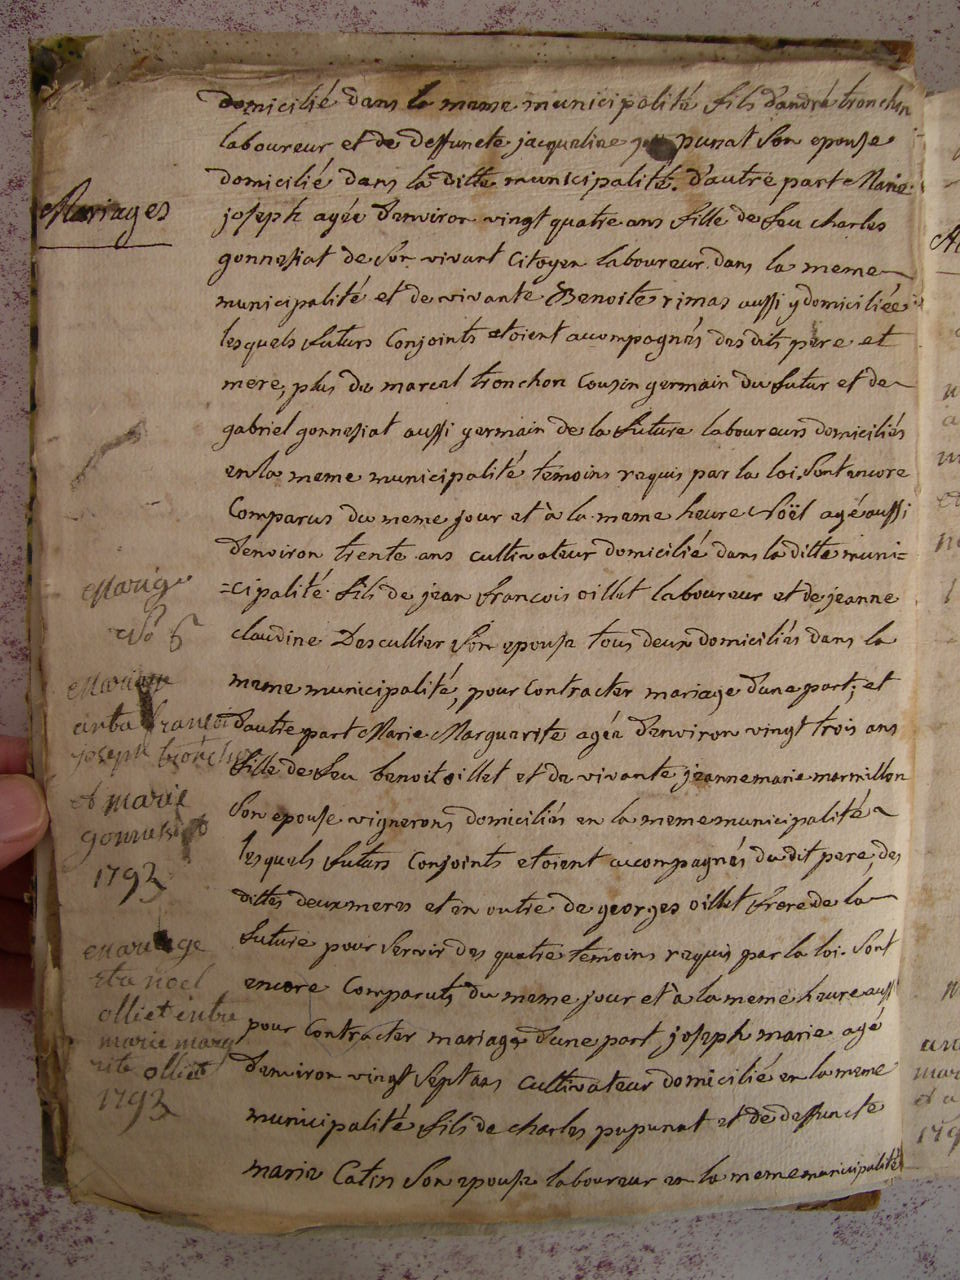 domicilié dans la meme municipalité fils d'andré tronchon
laboureur et de deffuncte jacqueline punat son epouse
domicilié dans la ditte municipalité. d'autre part Marie
Mariages
joseph agée denviron vingt quatre ans fille de feu charles
gonnessiat de son vivant Citoyen laboureur dans la meme
municipalité et de vivante Benoite rimas aussi y domiciliée
lesquels futurs Conjoints etoient accompagnés desdits pere et
mere, plus de marcel tronchon Cousin germain du futur et de
gabriel gonnesiat aussi germain de la future laboureurs domiciliés
en la meme municipalité temoins requis par la loi. Sont encore
Comparus du meme jour et à la meme heure Noël agé aussi
denviron trente ans cultivateur domicilié dans la ditte muni=
=cipalité fils de jean francois oillet laboureur et de jeanne
claudine Descullier son epouse tous deux domiciliés dans la
meme municipalité, pour Contracter mariage d'une part; et
d'autre part Marie Marguerite agée denviron vingt trois ans
fille de feu benoit oillet et de vivante jeanne marie marmillon
son epouse vignerons domiciliés en la meme municipalité
lesquels futurs Conjoints etoient accompagnés dudit pere, des
dittes deux meres et en outre de georges oillet frere de la
future pour servir des quatre temoins requis par la loi. Sont
encore Comparuts du meme jour et à la meme heure aussi
pour Contracter mariage d'une part joseph marie agé
denviron vingt sept ans cultivateur domicilié en la meme
municipalité fils de charles pupunat et de deffuncte
marie Catin son epouse laboureur en la meme municipalité
Mariage
No 5
Mariage
entre francoi
joseph tronchon
et marie
gonnessiat
1793
Mariage
noel
olliet entre
marie marg
rite olliet
1793